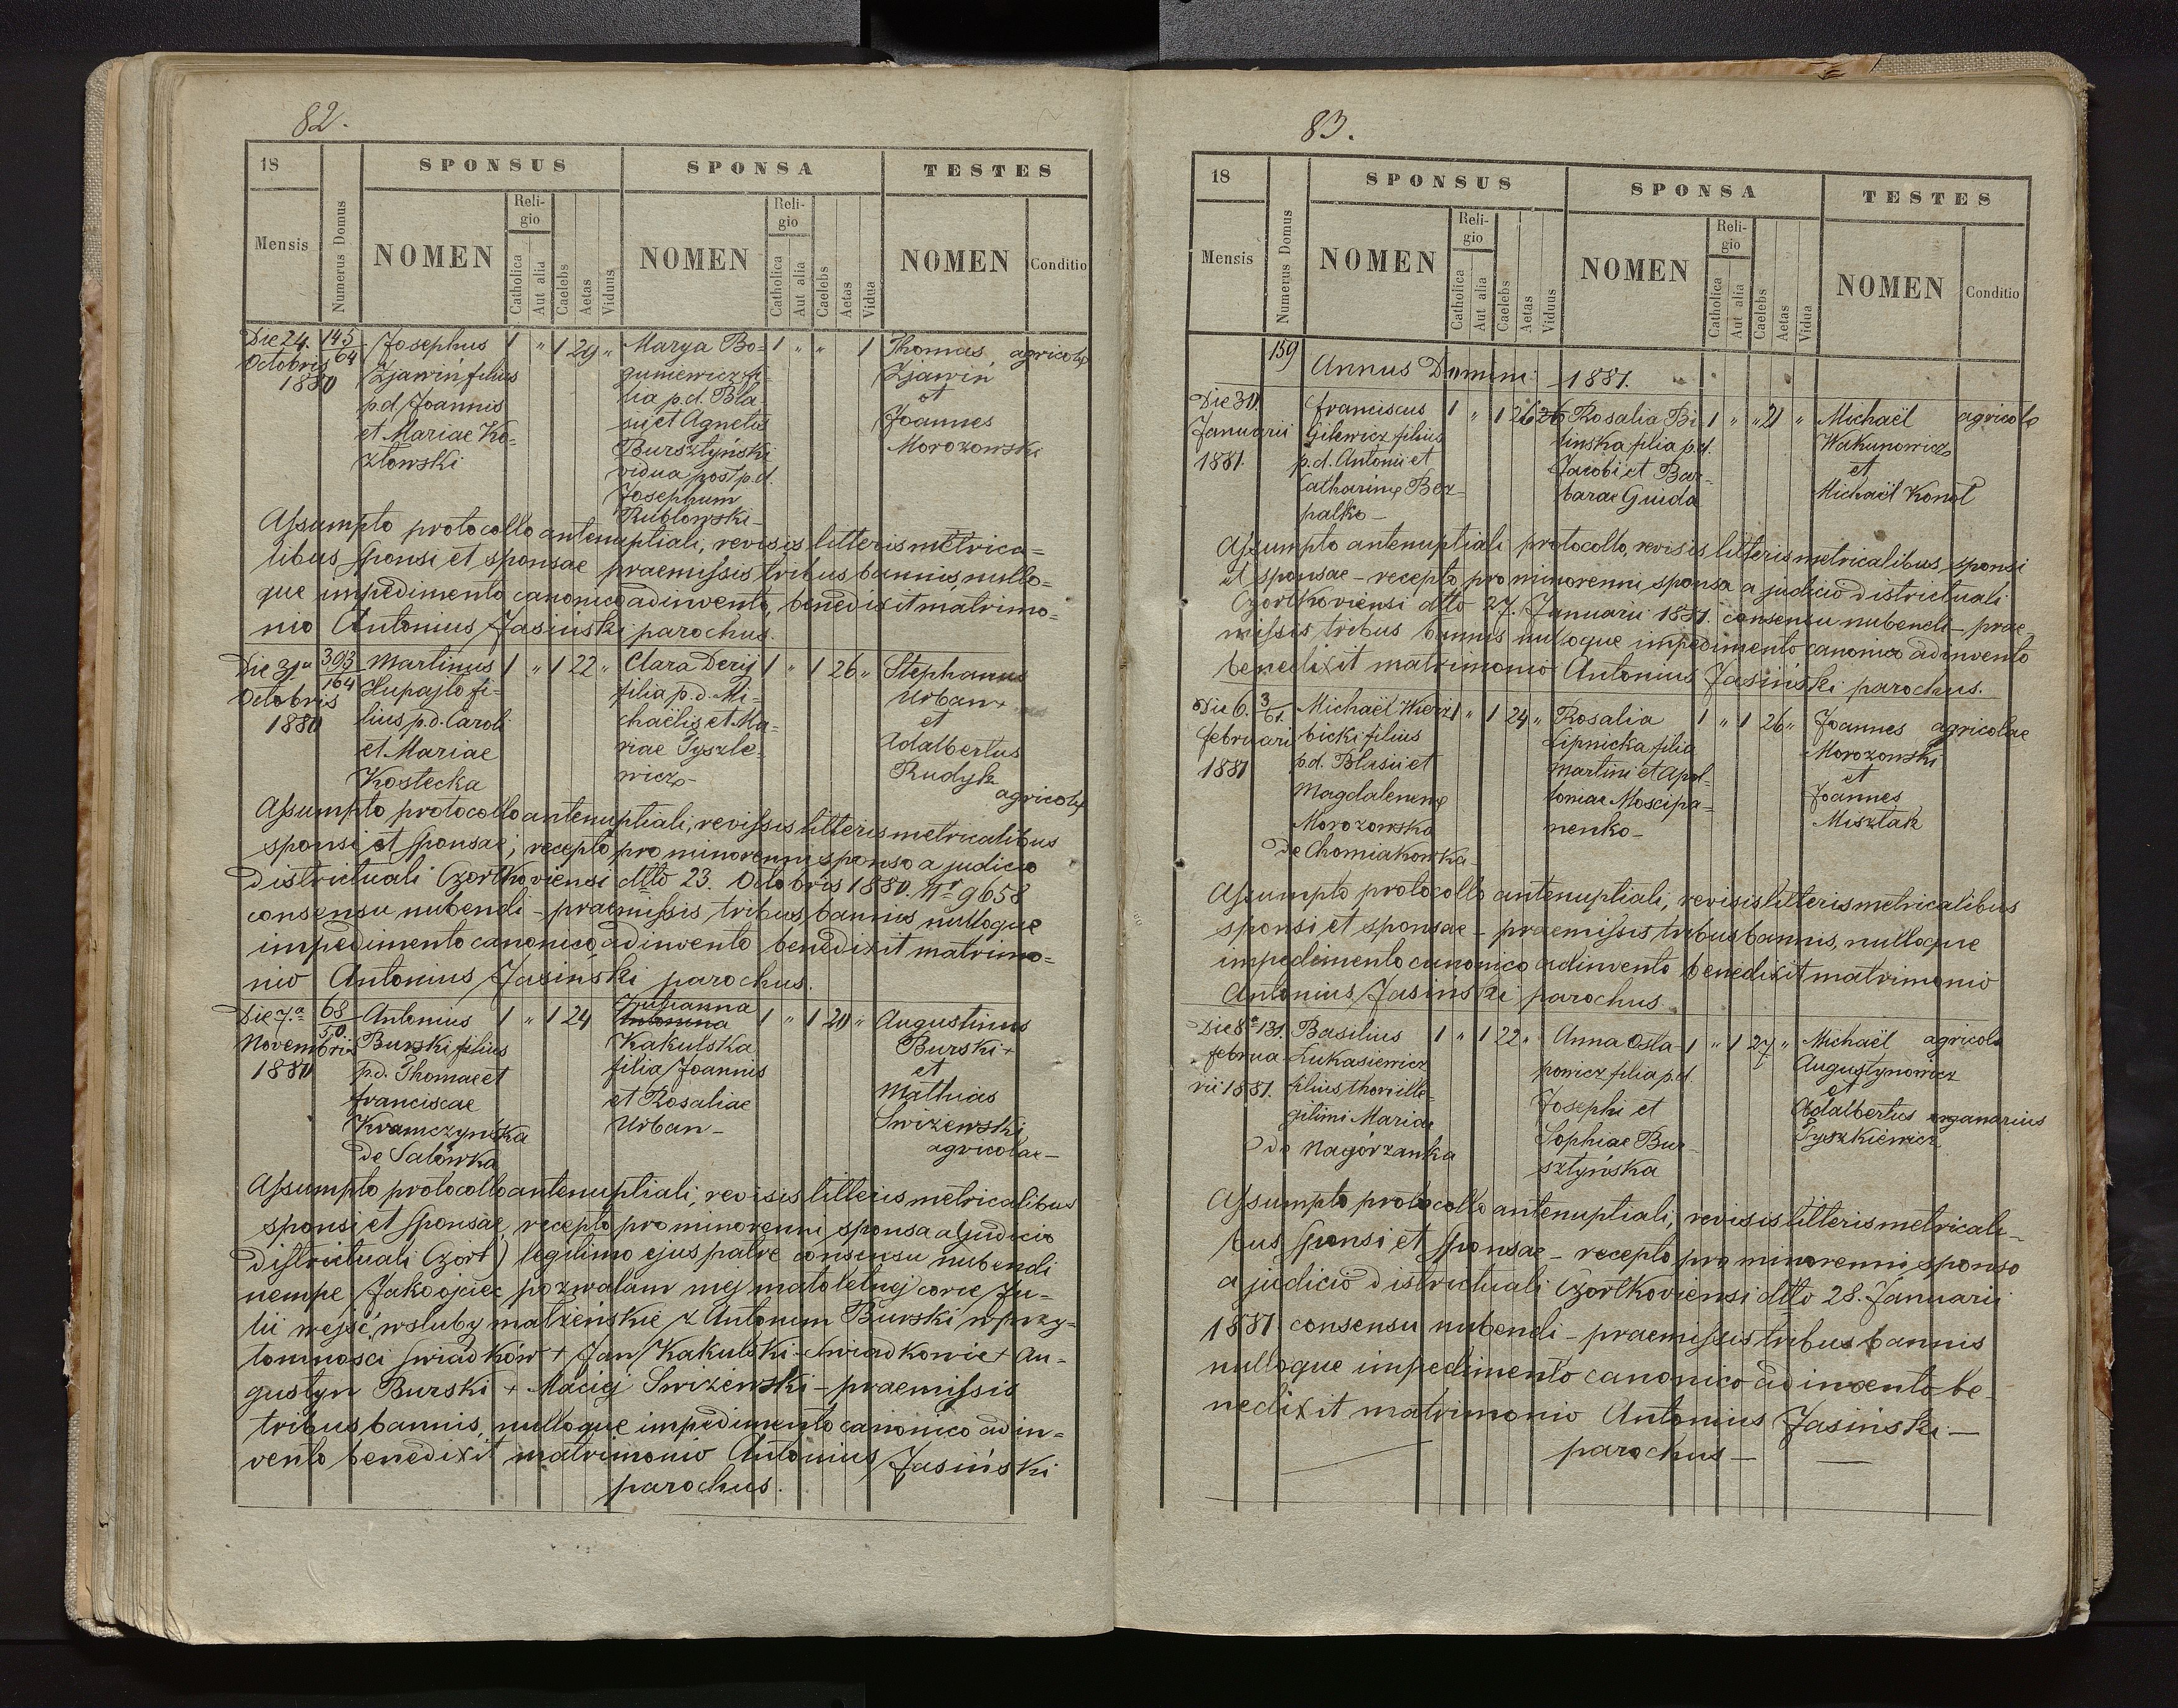 82.
18
SPONSUS
SPONSA
TESTES
Mensis
Numerus Domus
NOMEN
Religio
Catholica
Aut alia
Caelebs
Aetas
Viduus
NOMEN
Religio
Catholica
Aut alia
Caelebs
Aetas
Vidua
NOMEN
Conditio
Die 24.
Octobris
1880
145
64
Josephus
Zjawin filius
p.d. Joannis
et Mariae Ko=
złowski
1 " 1 29 "
Marya Bo=
guniewicz fi-
lia p.d. Bla
sii et Agnetis
Bursztyński
vidua post p.d.
Josephum
Rublowski-
1 " " 1
Thomas
Zjawin
et
Joannes
Morozowski
agricolae
Assumpto protocollo antenuptiali, revisis litteris metrica=
libus sponsi et sponsae praemissis tribus bannis, nullo=
que impedimento canonico adinvento, benedixit matrimo=
nio Antonius Jasinski parochus.
Die 31a
Octobris
1880
393
164
Martinus
Hupajło fi-
lius p.d. Caroli
et Mariae
Kostecka
1 " 1 22 "
Clara Derij
filia p.d. Mi-
chaëlis et Ma-
riae Tyszke-
wicz-
1 " 1 26 "
Stephanus
Urban+
et
Adalbertus
Rudyk
agricolae
Assumpto protocollo antenuptiali, revissis litteris metricalibus
sponsi et sponsae; recepto pro minorenni sponso a judicio
districtuali Czortkoviensi dtto 23. Octobris 1880 Nr 9658
consensu nubendi - praemissis tribus bannis nulloque
impedimento canonico adinvento benedixit matrimo=
nio Antonius Jasiński parochus.
Die 7.a
Novembris
1880
68
50
Antonius
Burski filius
p.d. Thomae et
Franciscae
Kramczyńska
de Salówka
1 " 1 24
Julianna
Antonina
Kakulska
filia Joannis
et Rosaliae
Urban-
1 " 1 20 "
Augustinus
Burski+
et
Mathias
Swizewski
agricolae-
Assumpto protocollo antenuptiali, revisis litteris metricalibus
sponsi et sponsae, recepto pro minorenni sponsa a (judicio
districtuali Czort) legitimo ejus patre consensu nubendi
nempe Jako ojciec pozwalam mej małoletniej corce Ju-
lii wejść w sluby małżeńskie z Antonim Burski w przy-
tomnosci swiadków + Jan Kakulski - Swiadkowie + Au-
gustyn Burski + Maciej Swizewski - praemissis
tribus bannis, nulloque impedimento canonico adin=
vento benedixit matrimonio Antonius Jasiński
parochus.
83.
18
SPONSUS
SPONSA
TESTES
Mensis
Numerus Domus
NOMEN
Religio
Catholica
Aut alia
Caelebs
Aetas
Viduus
NOMEN
Religio
Catholica
Aut alia
Caelebs
Aetas
Vidua
NOMEN
Conditio
159
Annus Domini 1881.
Die 30.
Januarii
1881.
Franciscus
Gilewicz filius
p.d. Antonii et
Catharinae Bez-
palko-
1 " 1 26 26
Rosalia Bi
linska filia p.d.
Jacobi et Bar-
barae Guida
1 " " 21 "
Michaël
Wakunowicz
et
Michaël Konot
agricolae
Assumpto antenuptiali protocollo, revisis litteris metricalibus sponsi
et sponsae - recepto pro minorenni sponsa a judicio districtuali
Czortkoviensi dtto 27. Januarii 1881. consensu nubendi - prae-
missis tribus bannis nulloque impedimento canonico adinvento
benedixit matrimonio Antonius Jasiński parochus.
Die 6.
februari
1881
3
61.
Michaël Wierz
bicki filius
p.d. Blasii et
Magdalenae
Morozowska
de Chomiakowka-
1 " 1 24 "
Rosalia
Lipnicka filia
Martini et Apol-
loniae Moscipa-
nenko-
1 " 1 26 "
Joannes
Morozowski
et
Joannes
Misztak
agricolae
Assumpto protocollo antenuptiali, revisis litteris metricalibus
sponsi et sponsae - praemissis tribus bannis, nulloque
impedimento canonico adinvento benedixit matrimonio
Antonius Jasinski parochus.
Die 8a
februa
rii 1881.
131.
Basilius
Lukasiewicz
filius thori ille-
gitimi Mariae
de Nagórzanka
1 " 1 22 "
Anna Osta-
powicz filia p.d.
Josephi et
Sophiae Bur-
sztyńska
1 " 1 27 "
Michaël
Augustynowicz
et
Adalbertus
Tyszkiewicz
agricola
organarius
Assumpto protocollo antenuptiali, revisis litteris metricali-
bus sponsi et sponsae - recepto pro minorenni sponso
a judicio districtuali Czortkoviensi dtto 28. Januarii
1881 consensu nubendi - praemissis tribus bannis
nulloque impedimento canonico adinvento be-
nedixit matrimonio Antonius Jasiński -
parochus -